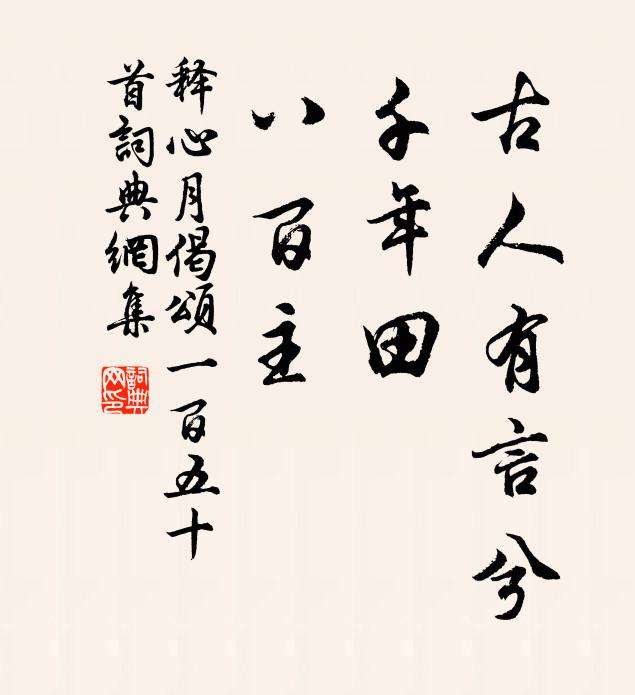 古人有言兮
千年田
八百主
释心月偈頌一百五十
首詞典網集
詞典網印